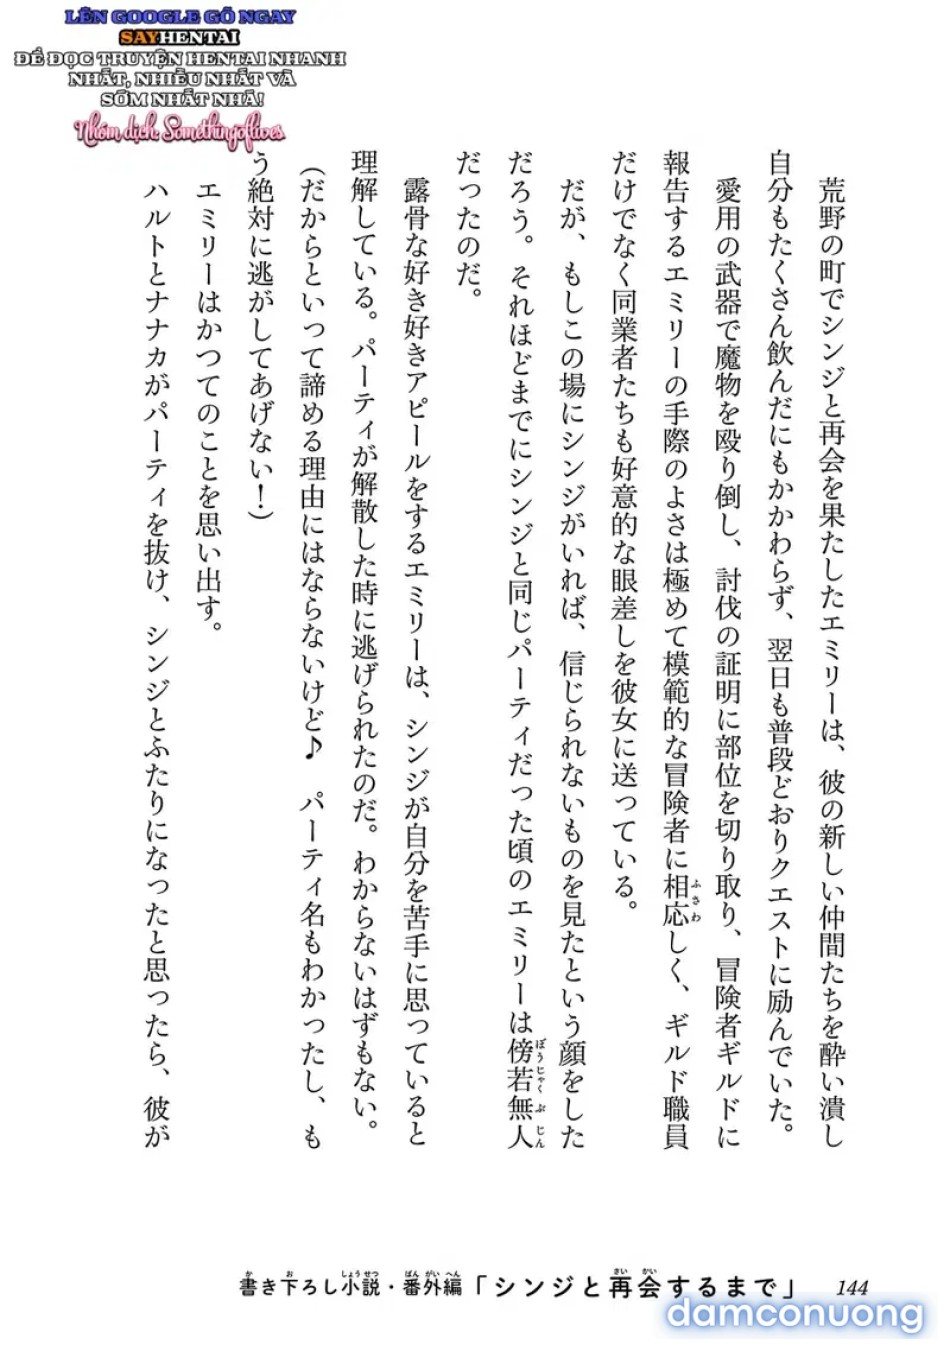 LÊN GOOGLE GÕ NGAY
SAYHENTAI
ĐỂ ĐỌC TRUYỆN HENTAI NHANH
NHẤT, NHIỀU NHẤT VÀ
SỚM NHẤT NHÁ!
Nhóm dịch: Somethingoflives
荒野の町でシンジと再会を果たしたエミリーは、彼の新しい仲間たちを酔い潰し
自分もたくさん飲んだにもかかわらず、翌日も普段どおりクエストに励んでいた。
愛用の武器で魔物を殴り倒し、討伐の証明に部位を切り取り、冒険者ギルドに
報告するエミリーの手際のよさは極めて模範的な冒険者に相応しく、ギルド職員
ふさわ
だけでなく同業者たちも好意的な眼差しを彼女に送っている。
だが、もしこの場にシンジがいれば、信じられないものを見たという顔をした
だろう。それほどまでにシンジと同じパーティだった頃のエミリーは傍若無人
ぼうじゃくぶじん
だったのだ。
露骨な好き好きアピールをするエミリーは、シンジが自分を苦手に思っていると
理解している。パーティが解散した時に逃げられたのだ。わからないはずもない。
（だからといって諦める理由にはならないけど♪　パーティ名もわかったし、も
う絶対に逃がしてあげない！）
エミリーはかつてのことを思い出す。
ハルトとナナカがパーティを抜け、シンジとふたりになったと思ったら、彼が
か お しょうせつ ばんがいへん さいかい
書き下ろし小説・番外編「シンジと再会するまで」 144
damconuong